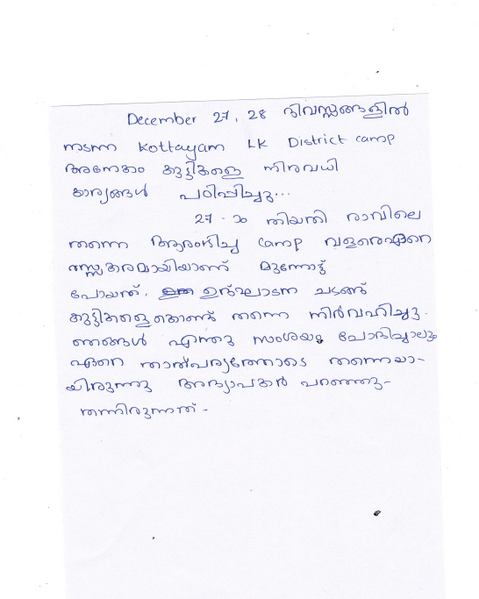 December 27, 28 ദിവസങ്ങളിൽ
നടന്ന Kottayam LK District camp
അനേകം കുട്ടികളെ നിരവധി
കാര്യങ്ങൾ പഠിപ്പിച്ചു...
27-ാം തിയതി രാവിലെ
തന്നെ ആരംഭിച്ച camp വളരെഏറെ
രസ്സകരമായിയാണ് മുന്നോട്ട്
പോയത്. ഉദ്ഘാടന ചടങ്ങ്
കുട്ടികളെകൊണ്ട് തന്നെ നിർവഹിച്ചു.
ഞങ്ങൾ എന്തു സംശയം ചോദിച്ചാലും
ഏറെ താത്പര്യത്തോടെ തന്നെയാ-
യിരുന്നു അദ്യാപകർ പറഞ്ഞു-
തന്നിരുന്നത്.